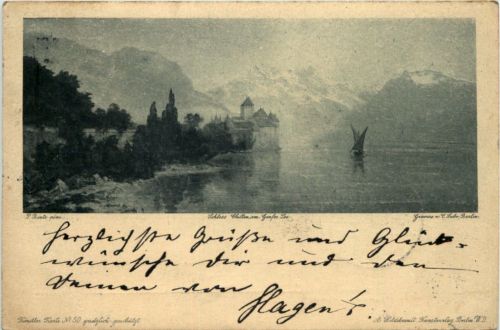 Schloss Chillon am Genfer See.
Herzlichste Grüße und Glück-
wünsche Dir und den
Damen von
Hagen's
Künstler Karte No 50 gesetzlich geschützt.
Kunstverlag Berlin W.